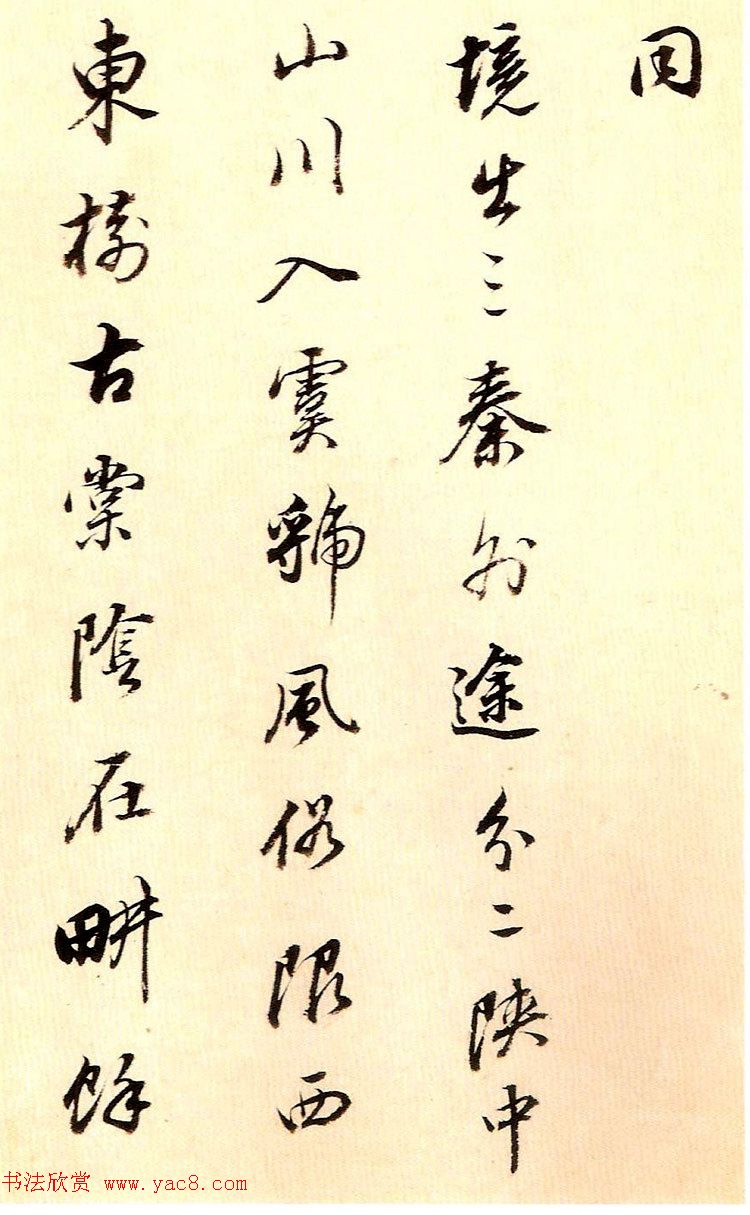 同
境出三秦外途分二陝中
山川入虞虢風俗限西
東樹古棠陰在畊餘
书法欣赏 www.yac8.com